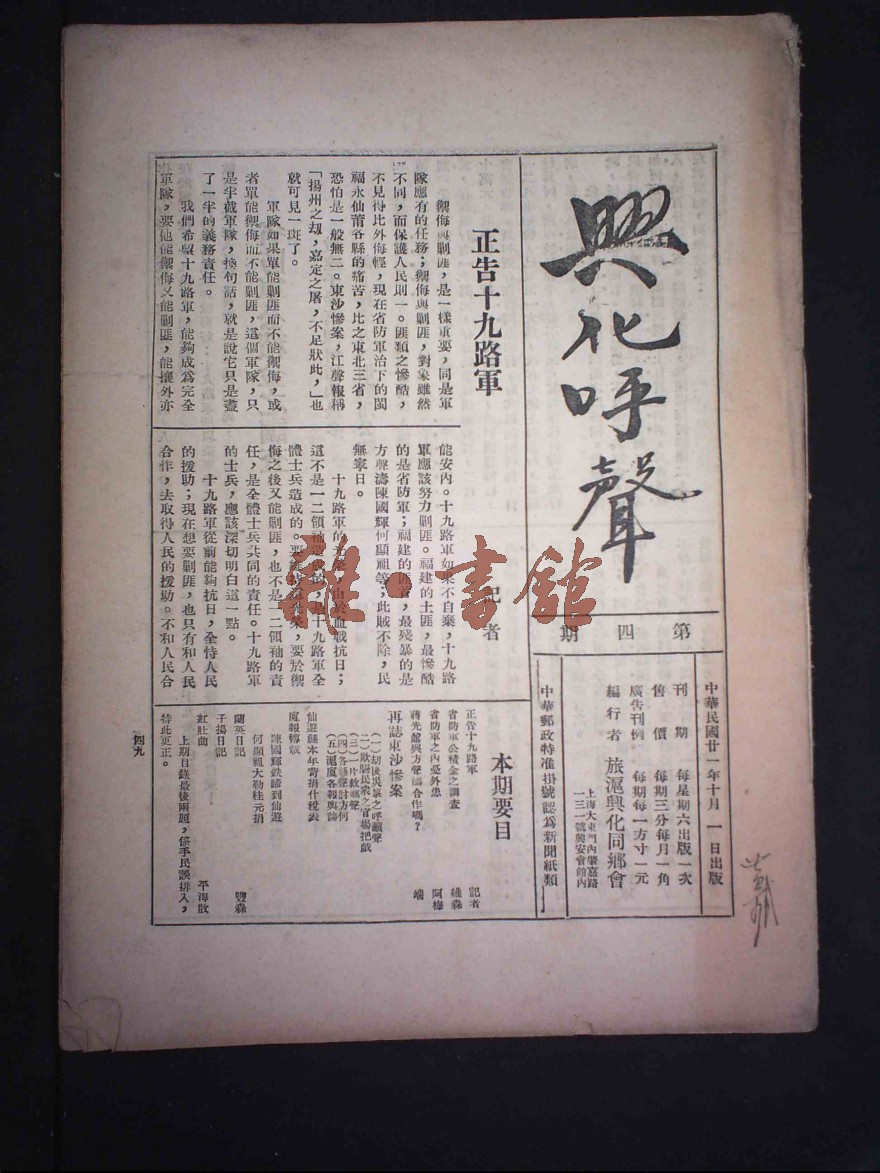 興化呼聲
第四期
中華民國廿一年十月一日出版
刊期　每星期六出版一次
售價　每期三分每月一角
廣告刊例　每期每一方寸一元
編行者　旅滬興化同鄉會
上海大東門內肇嘉路
一三一號興安會館內
中華郵政特准掛號認爲新聞紙類
正告十九路軍
記者
禦侮與剿匪，是一樣重要，同是軍
隊應有的任務；禦侮與剿匪，對象雖然
不同，而保護人民則一。匪類之慘酷，
不見得比外侮輕，現在省防軍治下的閩
福永仙莆各縣的痛苦，比之東北三省，
恐怕是一般無二。東沙慘案，江聲報稱
「揚州之刧，嘉定之屠，不足狀此，」也
就可見一斑了。
軍隊如果單能剿匪而不能禦侮，或
者單能禦侮而不能剿匪，這個軍隊，只
是半截軍隊，換句話，就是說它只是盡
了一半的義務責任。
我們希望十九路軍，能夠成爲完全
軍隊，要他能禦侮又能剿匪，能攘外亦
能安內。十九路軍如果不自棄，十九路
軍應該努力剿匪。福建的土匪，最慘酷
的是省防軍；福建的匪首，最殘暴的是
方聲濤陳國輝何顯祖等；此賊不除，民
無寧日。
十九路軍的光榮，由於血戰抗日；
這不是一二領袖造成的，是十九路軍全
體士兵造成的。要維持這光榮，要於禦
侮之後又能剿匪，也不是一二領袖的責
任，是全體士兵共同的責任。十九路軍
的士兵，應該深切明白這一點。
十九路軍從前能夠抗日，全恃人民
的援助；現在想要剿匪，也只有和人民
合作，去取得人民的援助。不和人民合
本期要目
正告十九路軍　記者
省防軍公積金之調查　維森
省防軍之內憂外患　阿梅
蔣光鼐與方聲濤合作嗎？　端
再誌東沙慘案
（一）刧後災黎之呼籲聲
（二）欺騙民衆之官場把戲
（三）一片救鄉聲
（四）各縣聲討方何
（五）滬廈各報輿論
仙遊縣本年苛捐什稅表
庭報轉載
陳國輝鉄蹄到仙遊
何顯祖大勒桂元捐
蘭英日記　豐森
子揚日記
紅肚曲　平海散
上期目錄最後兩題，係手民誤排入，
特此更正。
四九
雜·書館